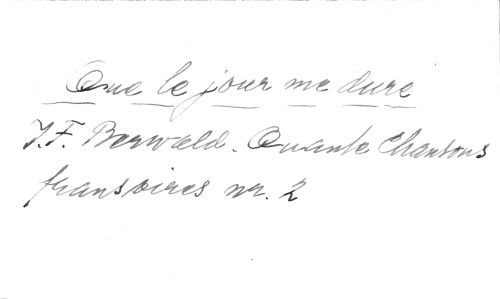 Que le jour me dure
J.F. Berwald. Quante Chansons
fransoires nr. 2